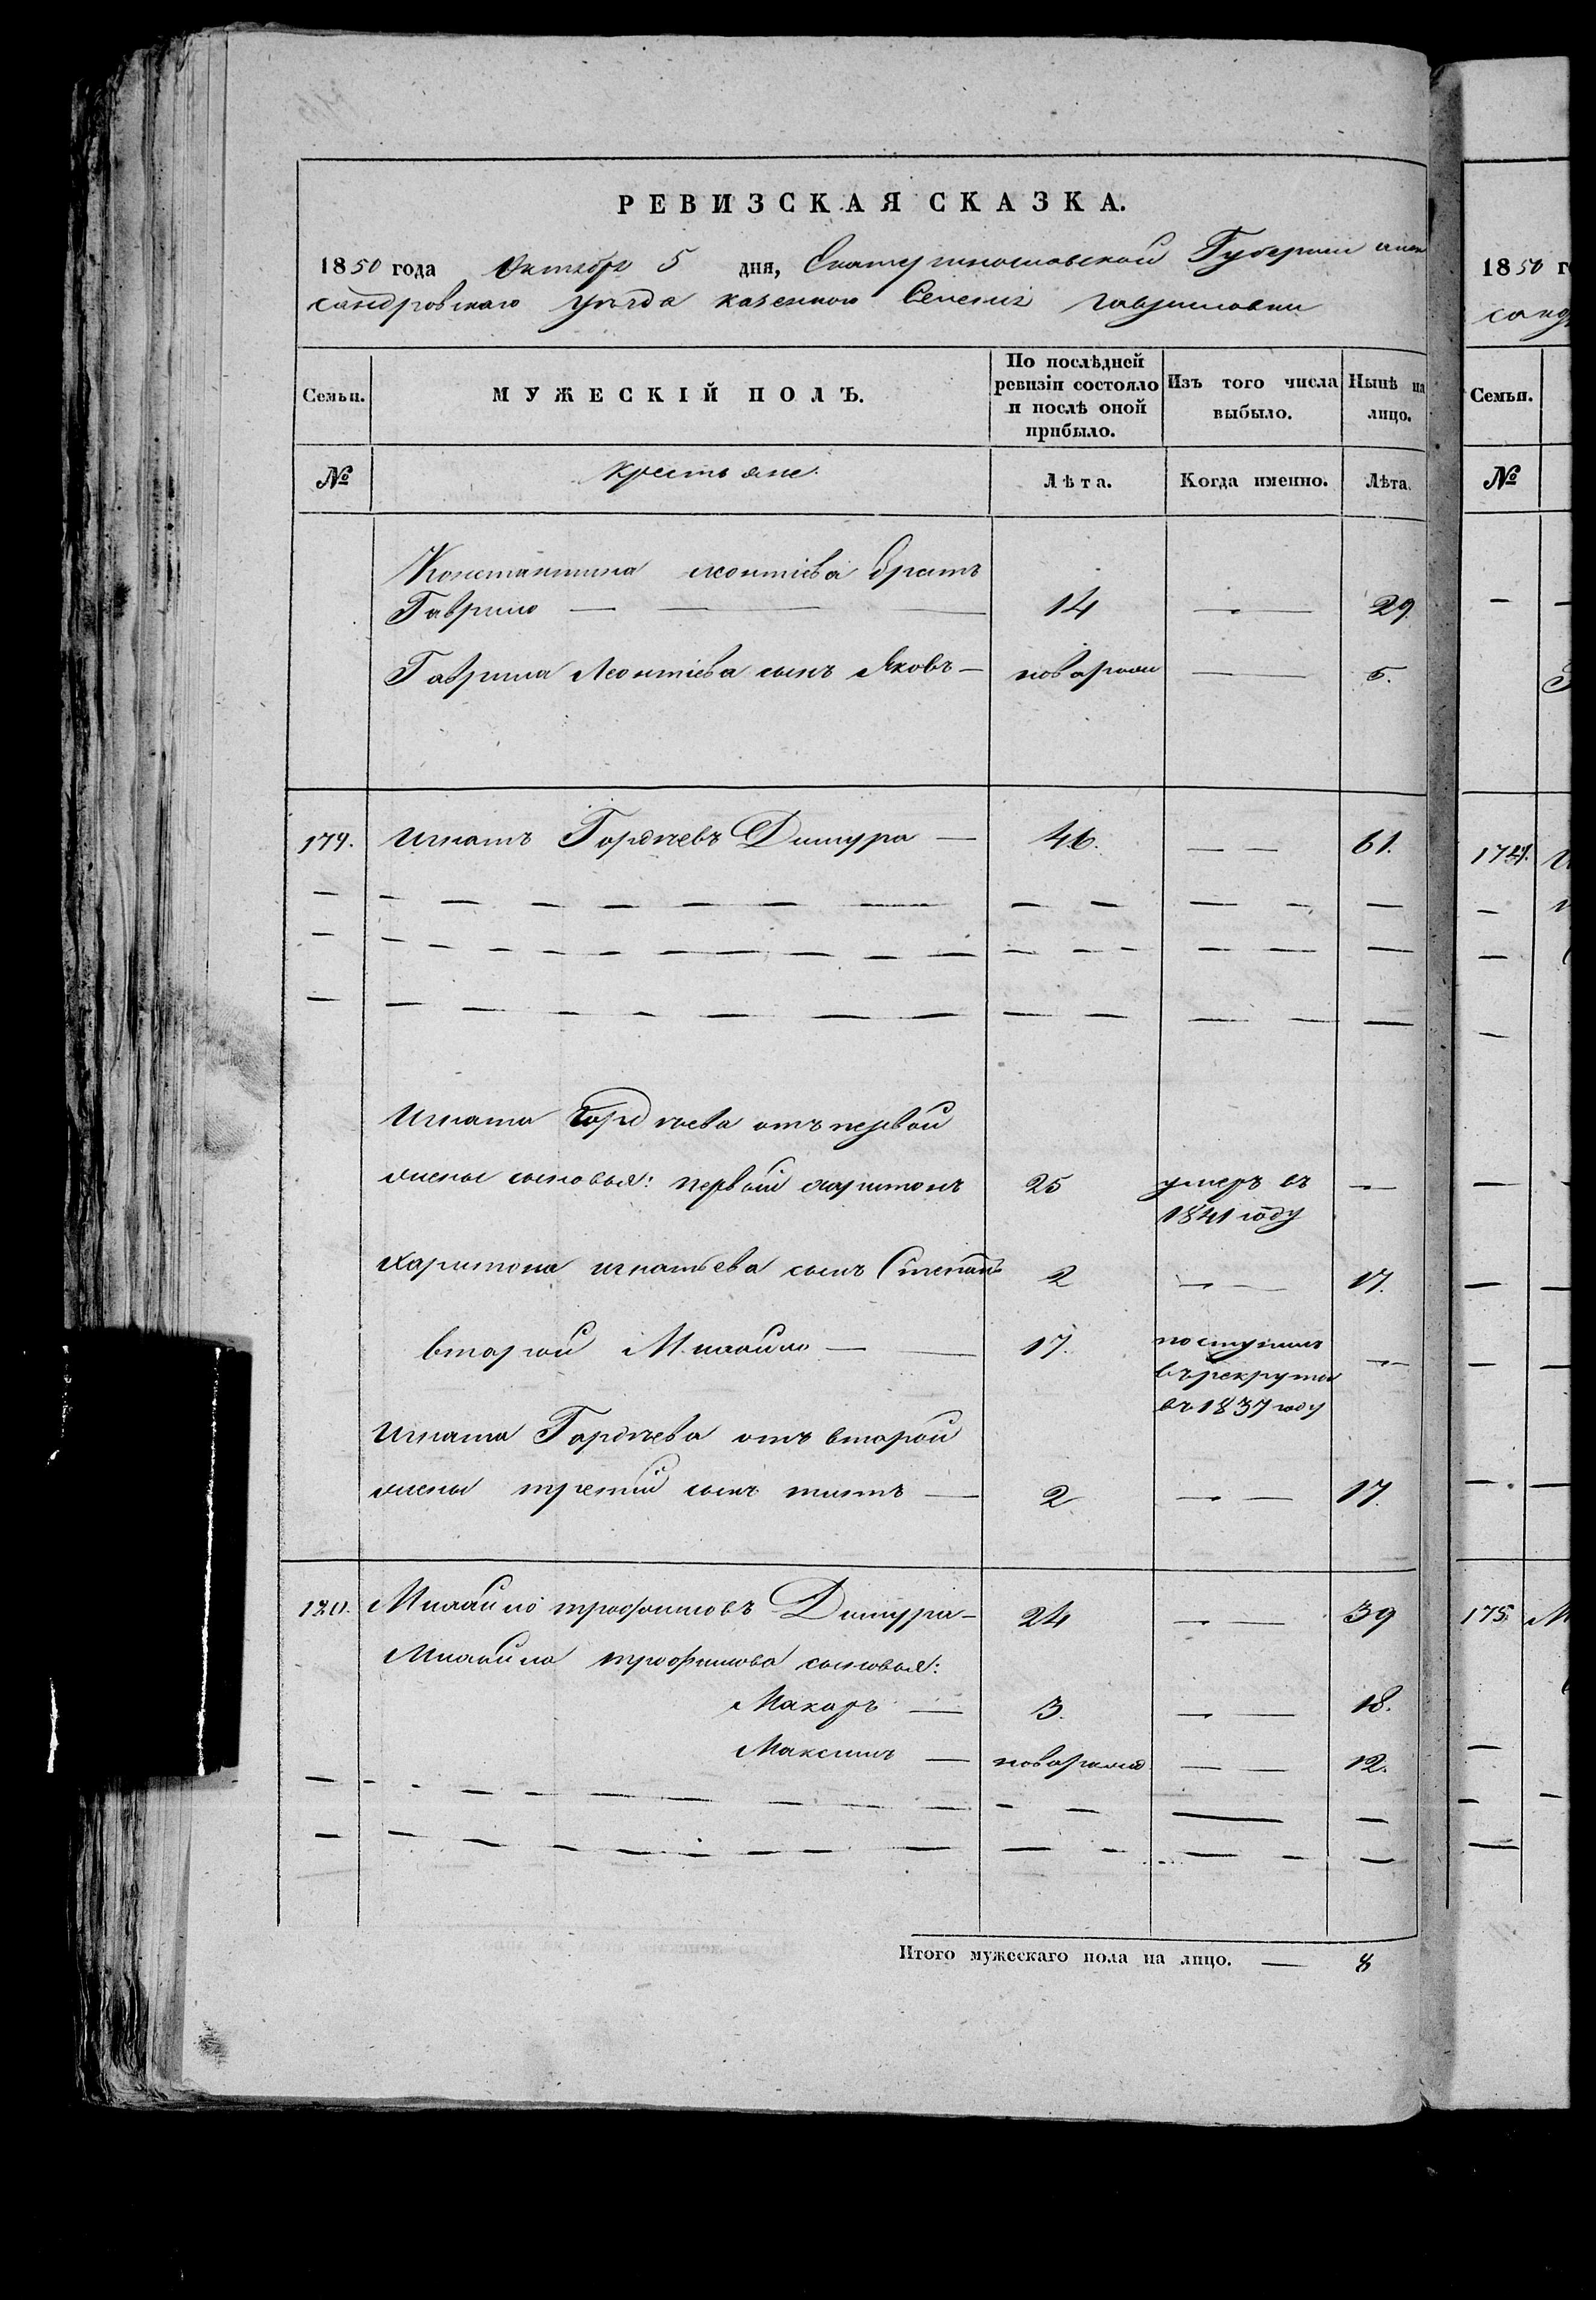 РЕВИЗСКАЯ СКАЗКА.
1850 года Октября 5 дня, Екатеринославской Губернии Алек
сандровскаго уезда казенного Селения Гавриловки
Семьи. МУЖЕСКІЙ ПОЛЪ. По послѣдней ревизіи состояло и послѣ оной прибыло. Изъ того числа выбыло. Нынѣ на лицо.
№ Крестьяне. Лѣта. Когда именно. Лѣта.
Константина Леонтіева братъ
Гаврило — — — 14 — 29
Гаврила Леонтіева сынъ Яковъ — новорожд — 5.
179. Игнатъ Гордѣевъ Дитура — 46. — — 61.
Игната Гордѣева отъ первой
жены сыновья: первый Харитонъ 25 умеръ въ —
1841 году
Харитона Игнатьева сынъ Степанъ 2 — — 17.
второй Михайло — — 17. поступилъ —
въ рекруты
въ 1837 году
Игната Гордѣева отъ второй
жены третій сынъ Титъ — 2 — — 17.
180. Михайло Трофимовъ Дитура — 24 — — 39
Михайла Трофимова сыновья:
Макаръ — 3. — — 18.
Максимъ — новорожд — — 12.
Итого мужескаго пола на лицо. — 8
1850 г
санд
Семьи.
№
174.
175. М